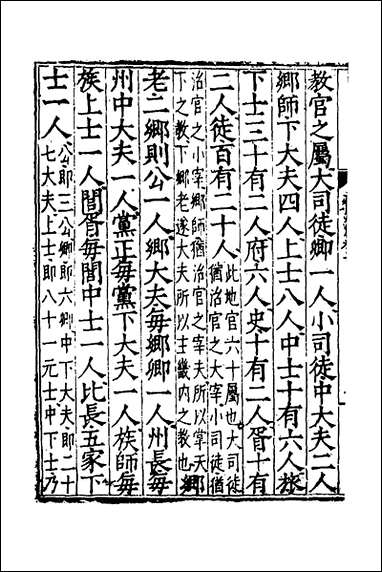 教官之屬大司徒卿一人小司徒中大夫二人
鄉師下大夫四人上士八人中士十有六人旅
下士三十有二人府六人史十有二人胥十有
二人徒百有二十人此地官六十屬也大司徒
猶治官之大宰小司徒猶
治官之小宰鄉師猶治官之宰夫所以掌天
下之教下鄉老遂大夫所以主畿內之教也鄉
老二鄉則公一人鄉大夫每鄉卿一人州長每
州中大夫一人黨正每黨下大夫一人族師每
族上士一人閭胥每閭中士一人比長五家下
士一人公即三公卿即六卿中下大夫即二十
七大夫上士即八十一元士中下士乃